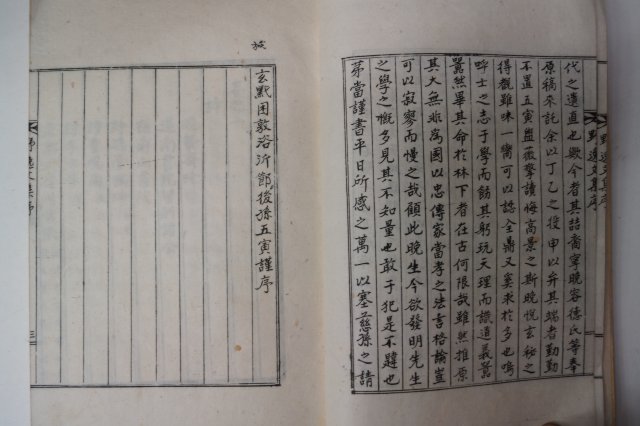 野逸文集序
代之遺直也歟今者其喆裔宰晩容德氏等奉
原稿來託余以丁乙之役申以弁其端者勤勤
不置五寅盥薇擎讀悔高景之斯晩悅玄秘之
得觀雖味一臠可以認全鼎又奚求於多也嗚
呼士之志于學而飭其躬玩天理而識道義嚣
嚣然畢其命於林下者在古何限哉雖然推原
其大無非爲國以忠傳家當孝之法言格論豈
可以寂寥而慢之哉顧此晩生今欲發明先生
之學之慨多見其不知量也敢于犯是不韙也
茅當謹書平日所感之萬一以塞慈孫之請
玄黓困敦洛沂節後孫五寅謹序
野逸文集序
三